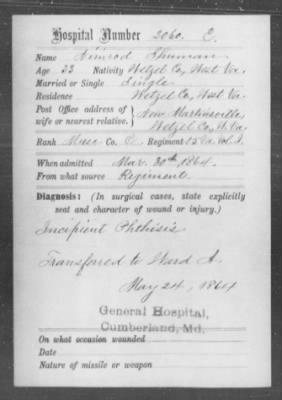 Hospital Number 2060. C.
Name Nimrod Shuman
Age 23 Nativity Wetzel Co, West Va.
Married or Single Single
Residence Wetzel Co, West Va.
Post Office address of New Martinsville
wife or nearest relative. Wetzel Co, W. Va.
Rank Musc Co. C. Regiment 15 Va. Vol. I.
When admitted Mar. 30th, 1864.
From what source Regiment
Diagnosis: (In surgical cases, state explicitly
seat and character of wound or injury.)
Incipient Phthisis
Transferred to Ward A.
May 24, 1864
General Hospital,
Cumberland, Md.
On what occasion wounded
Date
Nature of missile or weapon